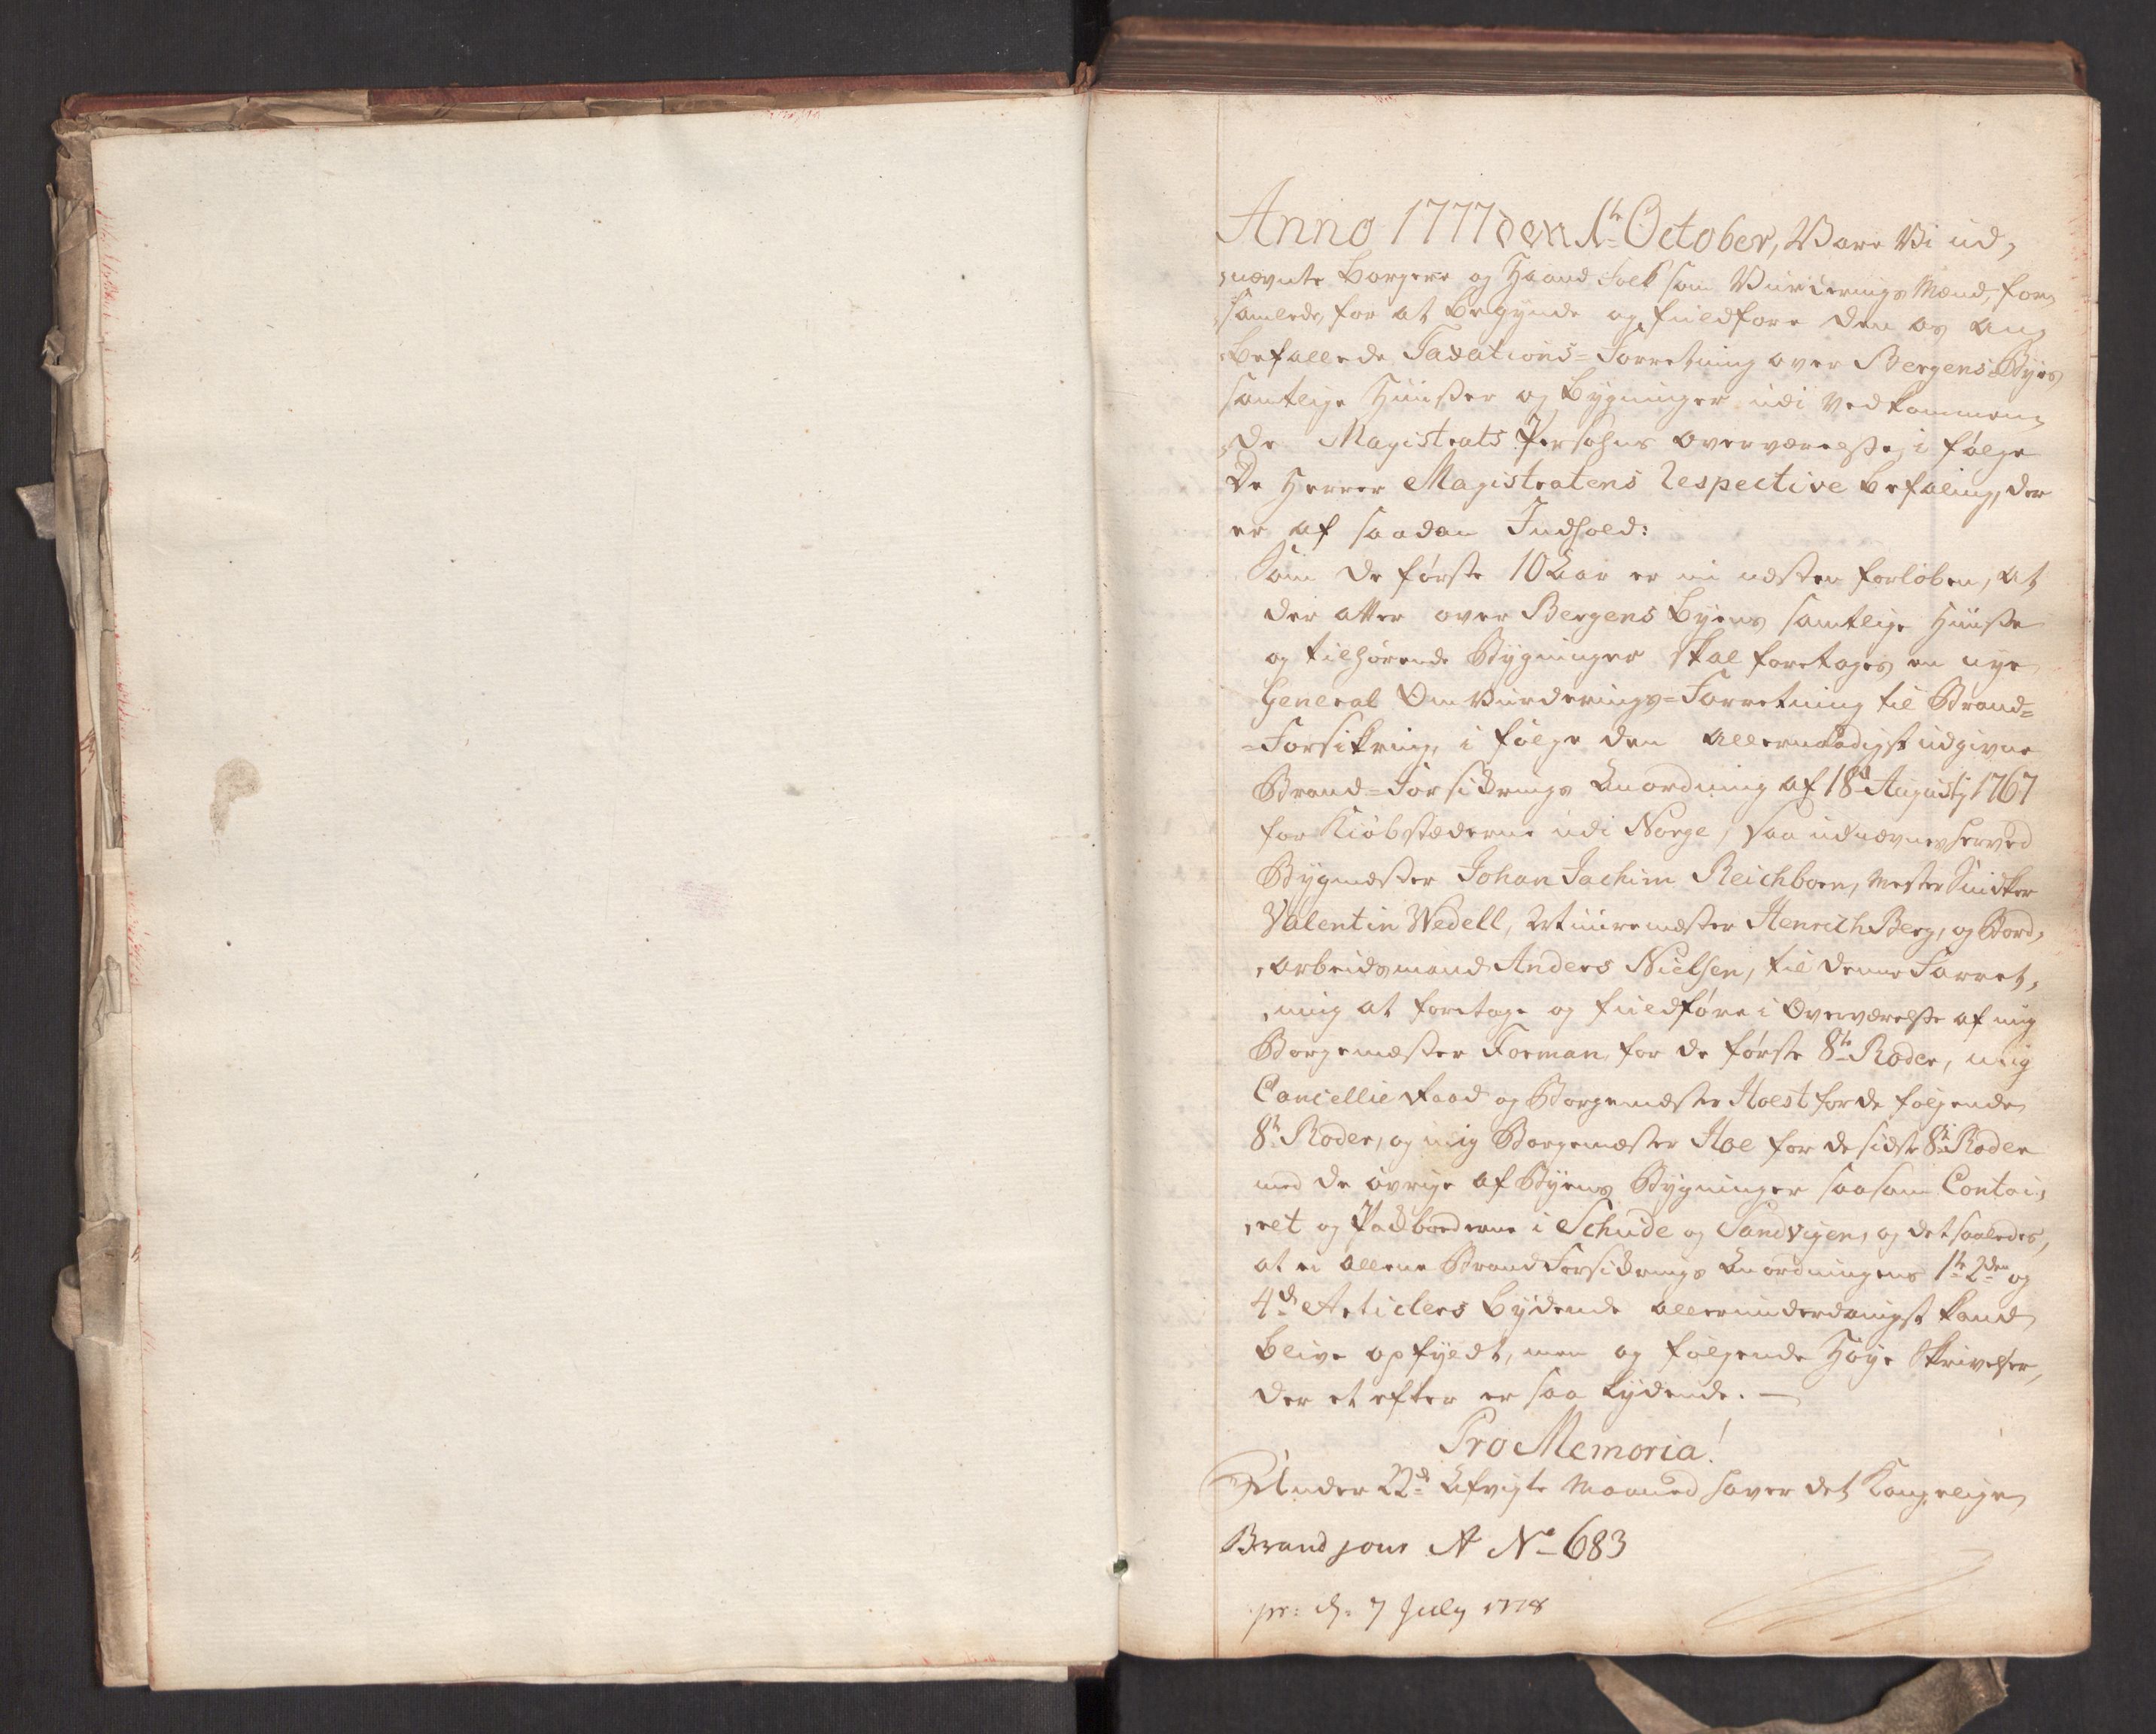 Anno 1777 den 1te October, Vare Vi ud,
,nævnte Borgere og Haand Folk som Vurderings Mænd, for,
,samlede, for at begynde og fuldføre den os an,
,befallede Taxations=Forretning over Bergens Byes
samtlige Huuser og bygninger udi vedkommen,
,de Magistrats Persohns overværelse, i følge
De Herrer Magistratens Respective befaling, der
er af saadan Indhold:
Som de første 10 Aar er nu næsten forløben, at
der atter over Bergens Byens samtlige Huuse
og tilhørende Bygninger skal foretages en nye
General Om Vurderings=Forretning til Brand=
=Forsikring, i følge den allernaadigst udgivne
Brand=Forsikrings Anordning af 18d Augusti 1767
for Kiøbstæderne udi Norge, saa udnævnes herved
Bygmæster Johan Jachim Reichborn, Mester Snidker
Valentin Wedell, Muurmæster Henrich Berg, og Bord,
,arbeidsmand Anders Nielsen, til denne Forret,
,ning at foretage og fuldføre i Overværelse af mig
Borgemæster Forman for de første 8te Roder, mig
Cancellie Raad og Borgemæster Hoest for de følgende
8te Roder, og mig Borgemæster Hoe for de sidste 8te Roder
med de øvrige af Byens Bygninger saasom Contoi,
,ret og Pakboderne i Schude og Sandvigen, og det saaledes,
at ei allene Brand Forsikrings Anordningens 1te 2den og
4d Articlers bydende allerunderdanigst kand
blive opfyldt, men og følgende Høye Skrivelser,
der et efter er saa lydende. —
Pro Memoria!
Under 22d Afvigte Maaned haver det Kongelige
Brand jour A No 683
pr: d: 7 July 1778